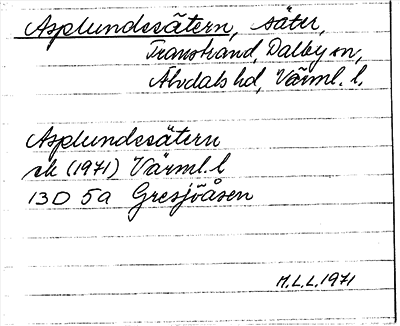 Asplundssätern, säter,
Transtrand, Dalby sn,
Älvdals hd, Värml. l.
Asplundssätern
ek (1971) Värml. l
13D 5a Gresjöåsen
M.L.L. 1971